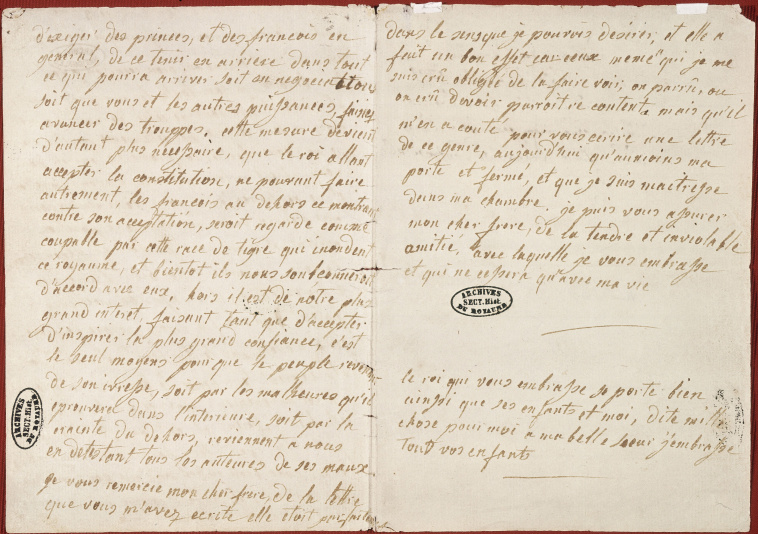 d'exiger des princes, et des francois en
general, de ce tenir en arriere dans tout
ce qui pourra arriver soit en negociations
soit que vous et les autres puissances faires
avancer des trouppes. cette mesure devient
d'autant plus necessaire, que le roi allant
accepter la constitution, ne pouvant faire
autrement, les francois au dehors ce montrant
contre son acceptation, seroit regardé comme
coupable par cette race de tigre qui inondent
ce royaume, et bientot ils nous soubconneroit
d'accord avec eux. hors il est de nôtre plus
grand interet, faisant tant que d'accepter
d'inspirer la plus grand confiance, c'est
le seul moyens pour que le peuple revenant
de son ivresse, soit par les malheures qu'il
eprouvera dans l'interieure, soit par la
crainte du dehors, reviennent a nous
en detestant tous les auteures de ses maux
je vous remercie mon cher frere, de la lettre
que vous m'avez ecrite elle etoit parfaite
ARCHIVES
SECT. Hist.
DU ROYAUME
dans le sens que je pouvois desirer, et elle a
fait un bon effet car ceux memê qui je me
suis crû obligée de la faire voir, on parrû, ou
on crû d'avoir parroitre content. mais qu'il
m'en a couté pour vous ecrire une lettre
de ce genre, aujourd'hui qu'aumoins ma
porte et fermé, et que je suis maitresse
dans ma chambre. je puis vous assurer
mon cher frere, de la tendre et inviolable
amitié, avec laquelle je vous embrasse
et qui ne cessera qu'avec ma vie
ARCHIVES
SECT. Hist.
DU ROYAUME
le roi qui vous embrasse se porte bien
ainsi que ses enfants et moi, dite mille
chose pour moi a ma belle soeur j'embrasse
tout vos enfants